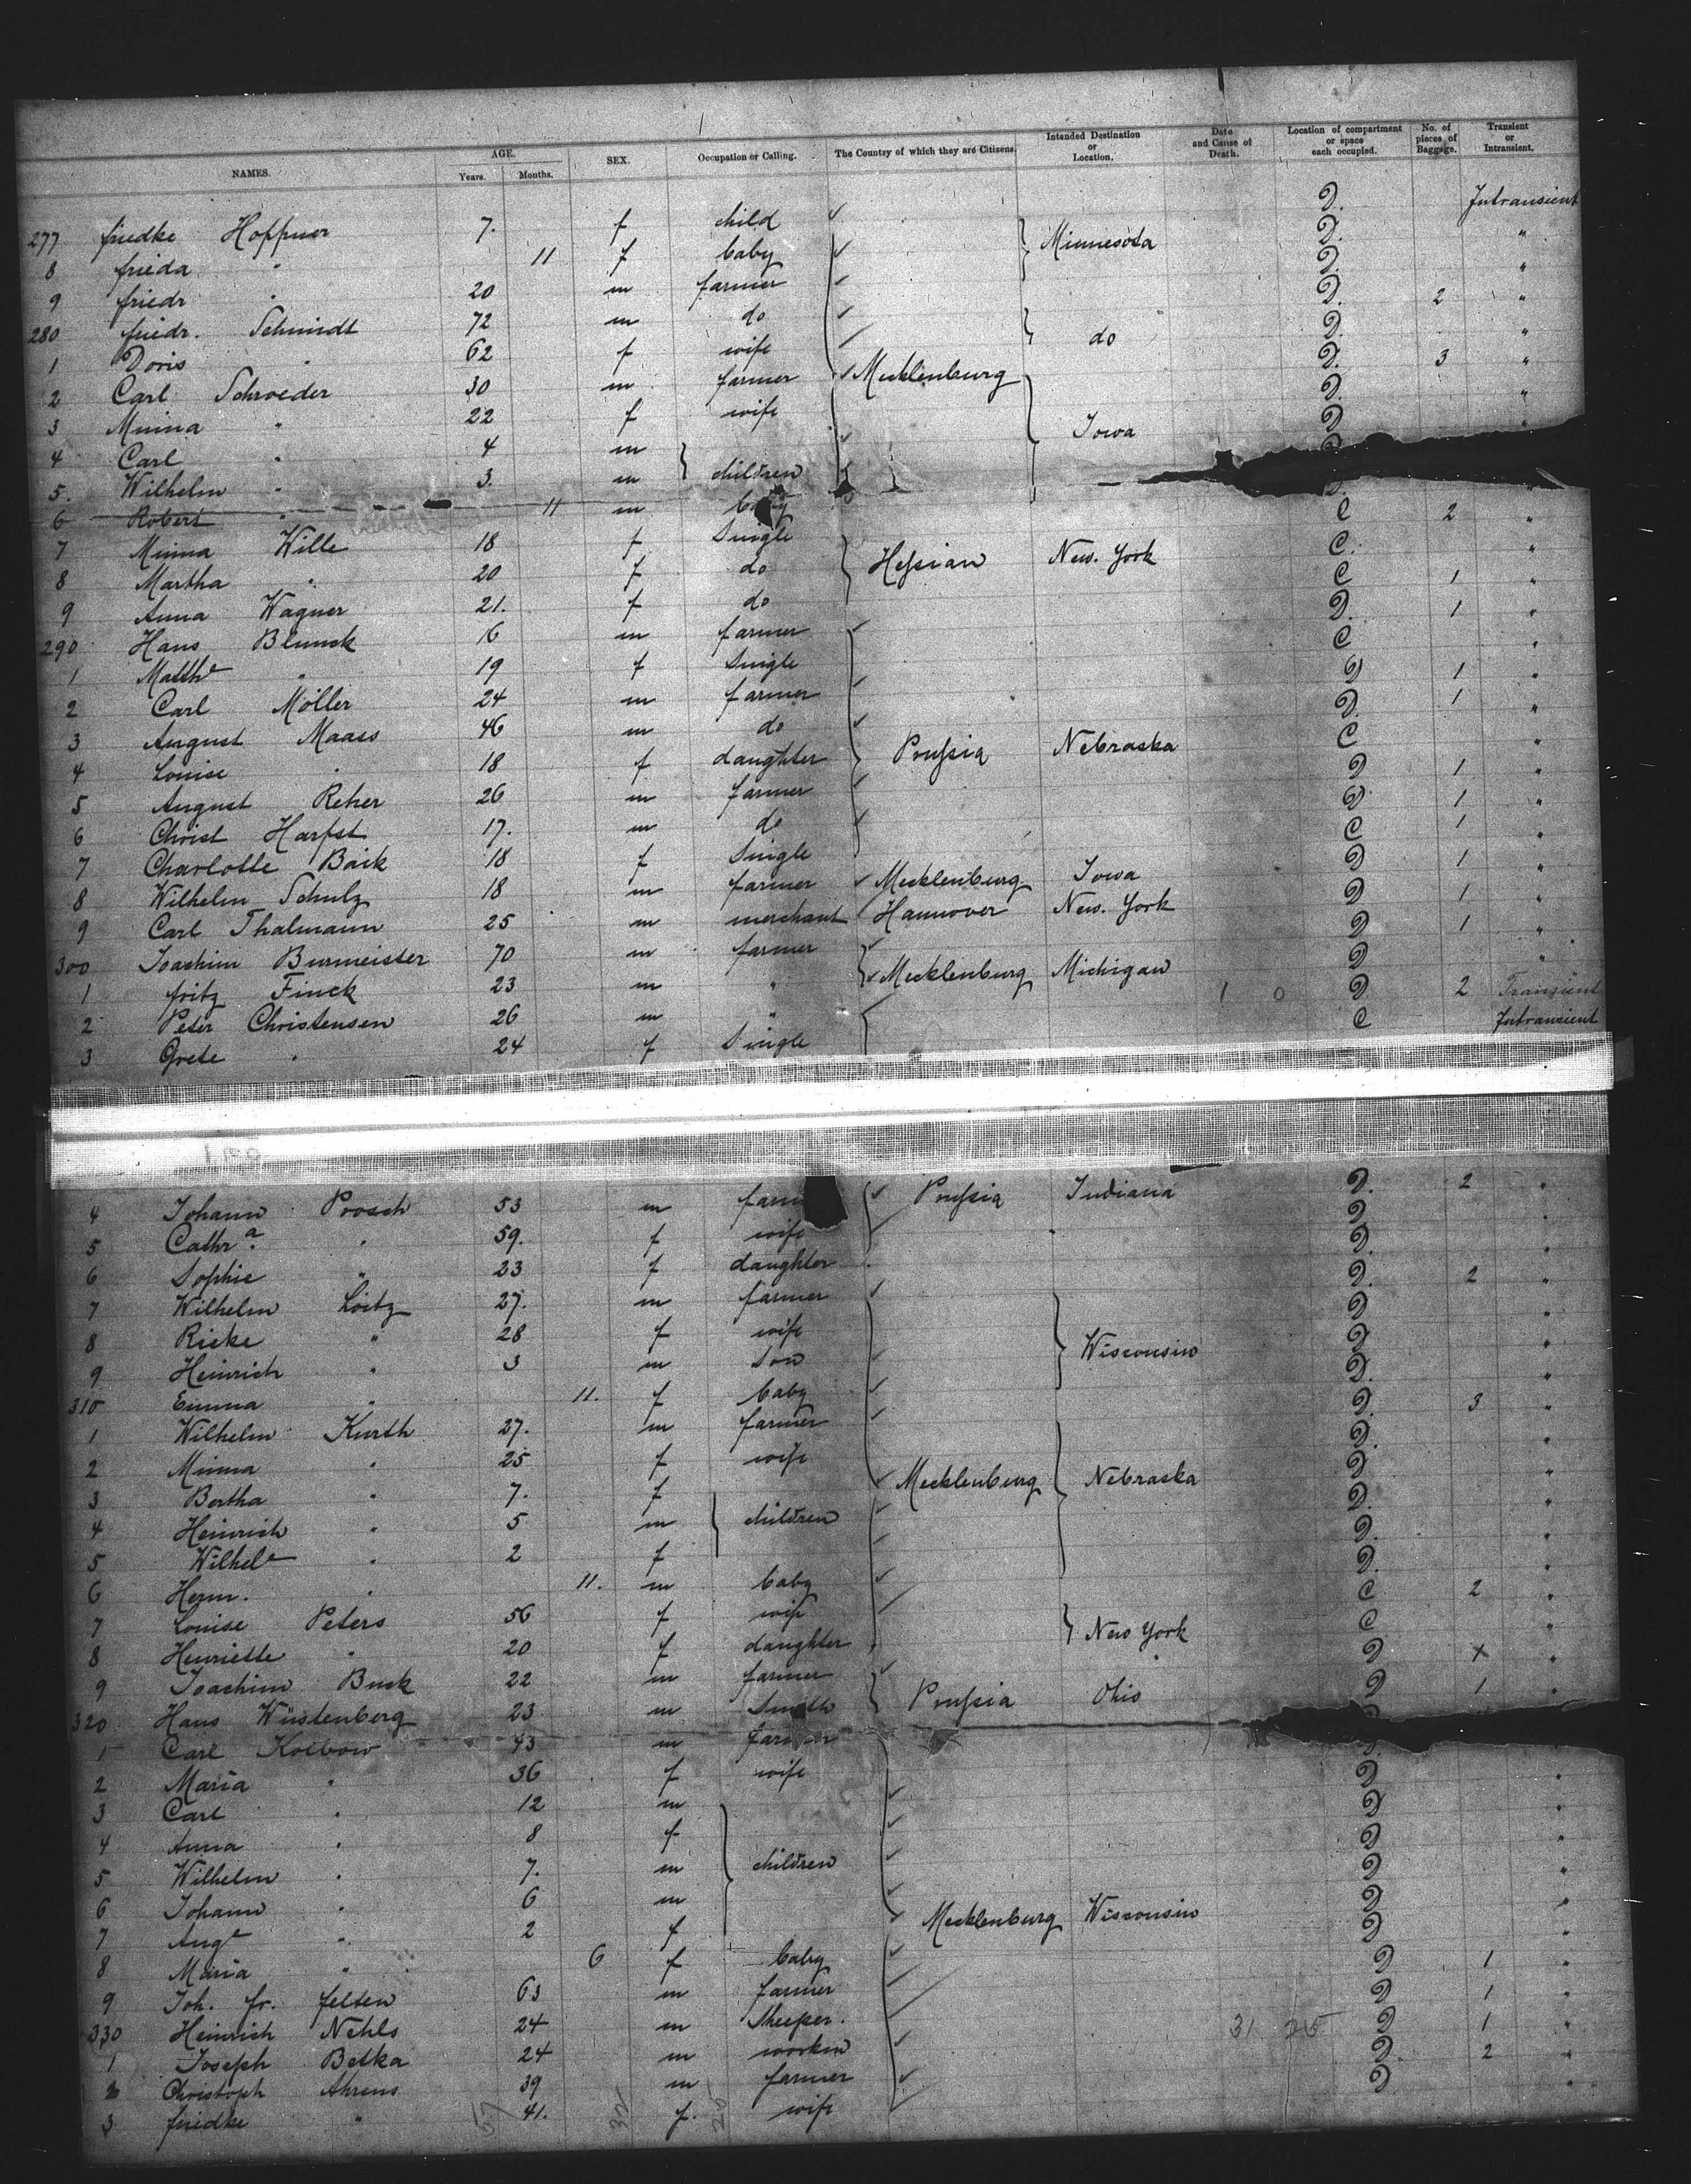 NAMES. AGE. Years. Months. SEX. Occupation or Calling. The Country of which they are Citizens. Intended Destination or Location. Date and Cause of Death. Location of compartment or space each occupied. No. of pieces of Baggage. Transient or Intransient.
277 friedke Hoffner 7. f child D. Intransient
8 frieda " 11 f baby Minnesota D. "
9 friedr " 20 m farmer D. "
280 friedr. Schmidt 72 m do D. 2 "
1 Doris " 62 f wife do D. "
2 Carl Schroeder 30 m farmer Mecklenburg D. 3 "
3 Minna " 22 f wife D. "
4 Carl " 4 m Iowa D "
5. Wilhelm " 3. m children
6 Robert " 11 m baby D. "
7 Minna Wille 18 f Single C 2 "
8 Martha " 20 f do Hessian New. York C. "
9 Anna Wagner 21. f do C 1 "
290 Hans Blunck 16 m farmer D. 1 "
1 Mathe " 19 f Single C "
2 Carl Möller 24 m farmer D 1 "
3 August Maass 46 m do D. 1 "
4 Louise " 18 f daughter Prussia Nebraska C "
5 August Reher 26 m farmer D 1 "
6 Christ Harfst 17. m do D 1 "
7 Charlotte Baik 18 f Single C 1 "
8 Wilhelm Schulz 18 m farmer Mecklenburg Iowa D 1 "
9 Carl Thalmann 25 m merchant Hannover New. York D 1 "
300 Joachim Burmeister 70 m farmer D 1 "
1 fritz Finck 23 m " Mecklenburg Michigan D "
2 Peter Christensen 26 m " 1 0 D 2 Transient
3 Grete " 24 f Single C Intransient
4 Johann Poosch 53 m farm Prussia Indiana D. 2 "
5 Cathra. " 59. f wife D "
6 Sophie " 23 f daughter D. "
7 Wilhelm Loitz 27. m farmer D. 2 "
8 Rieke " 28 f wife D "
9 Heinrich " 3 m Son Wisconsin D "
310 Emma " 11. f baby D. "
1 Wilhelm Kurth 27. m farmer D. 3 "
2 Minna " 25 f wife D. "
3 Bertha " 7. f Mecklenburg Nebraska D "
4 Heinrich " 5 m children D. "
5 Wilhele " 2 f D. "
6 Herm. " 11. m baby D. "
7 Louise Peters 56 f wife C 2 "
8 Henriette " 20 f daughter New York C "
9 Joachim Buck 22 m farmer D X "
320 Hans Wüstenberg 23 m Smith Prussia Ohio D 1 "
1 Carl Kolbow 43 m farmer
2 Maria " 36 f wife D "
3 Carl " 12 m D "
4 Anna " 8 f D
5 Wilhelm " 7. m children D "
6 Johann " 6 m D "
7 Auge " 2 f Mecklenburg Wisconsin D "
8 Maria " 6 f baby D 1 "
9 Joh. fr. felten 63 m farmer D 1 "
330 Heinrich Nehls 24 m Sheeper. 31 25 D 1 "
1 Joseph Betka 24 m workm D. 2 "
2 Christoph Ahrens 39 m farmer D "
3 friedke " 41. f. wife
57 32 25